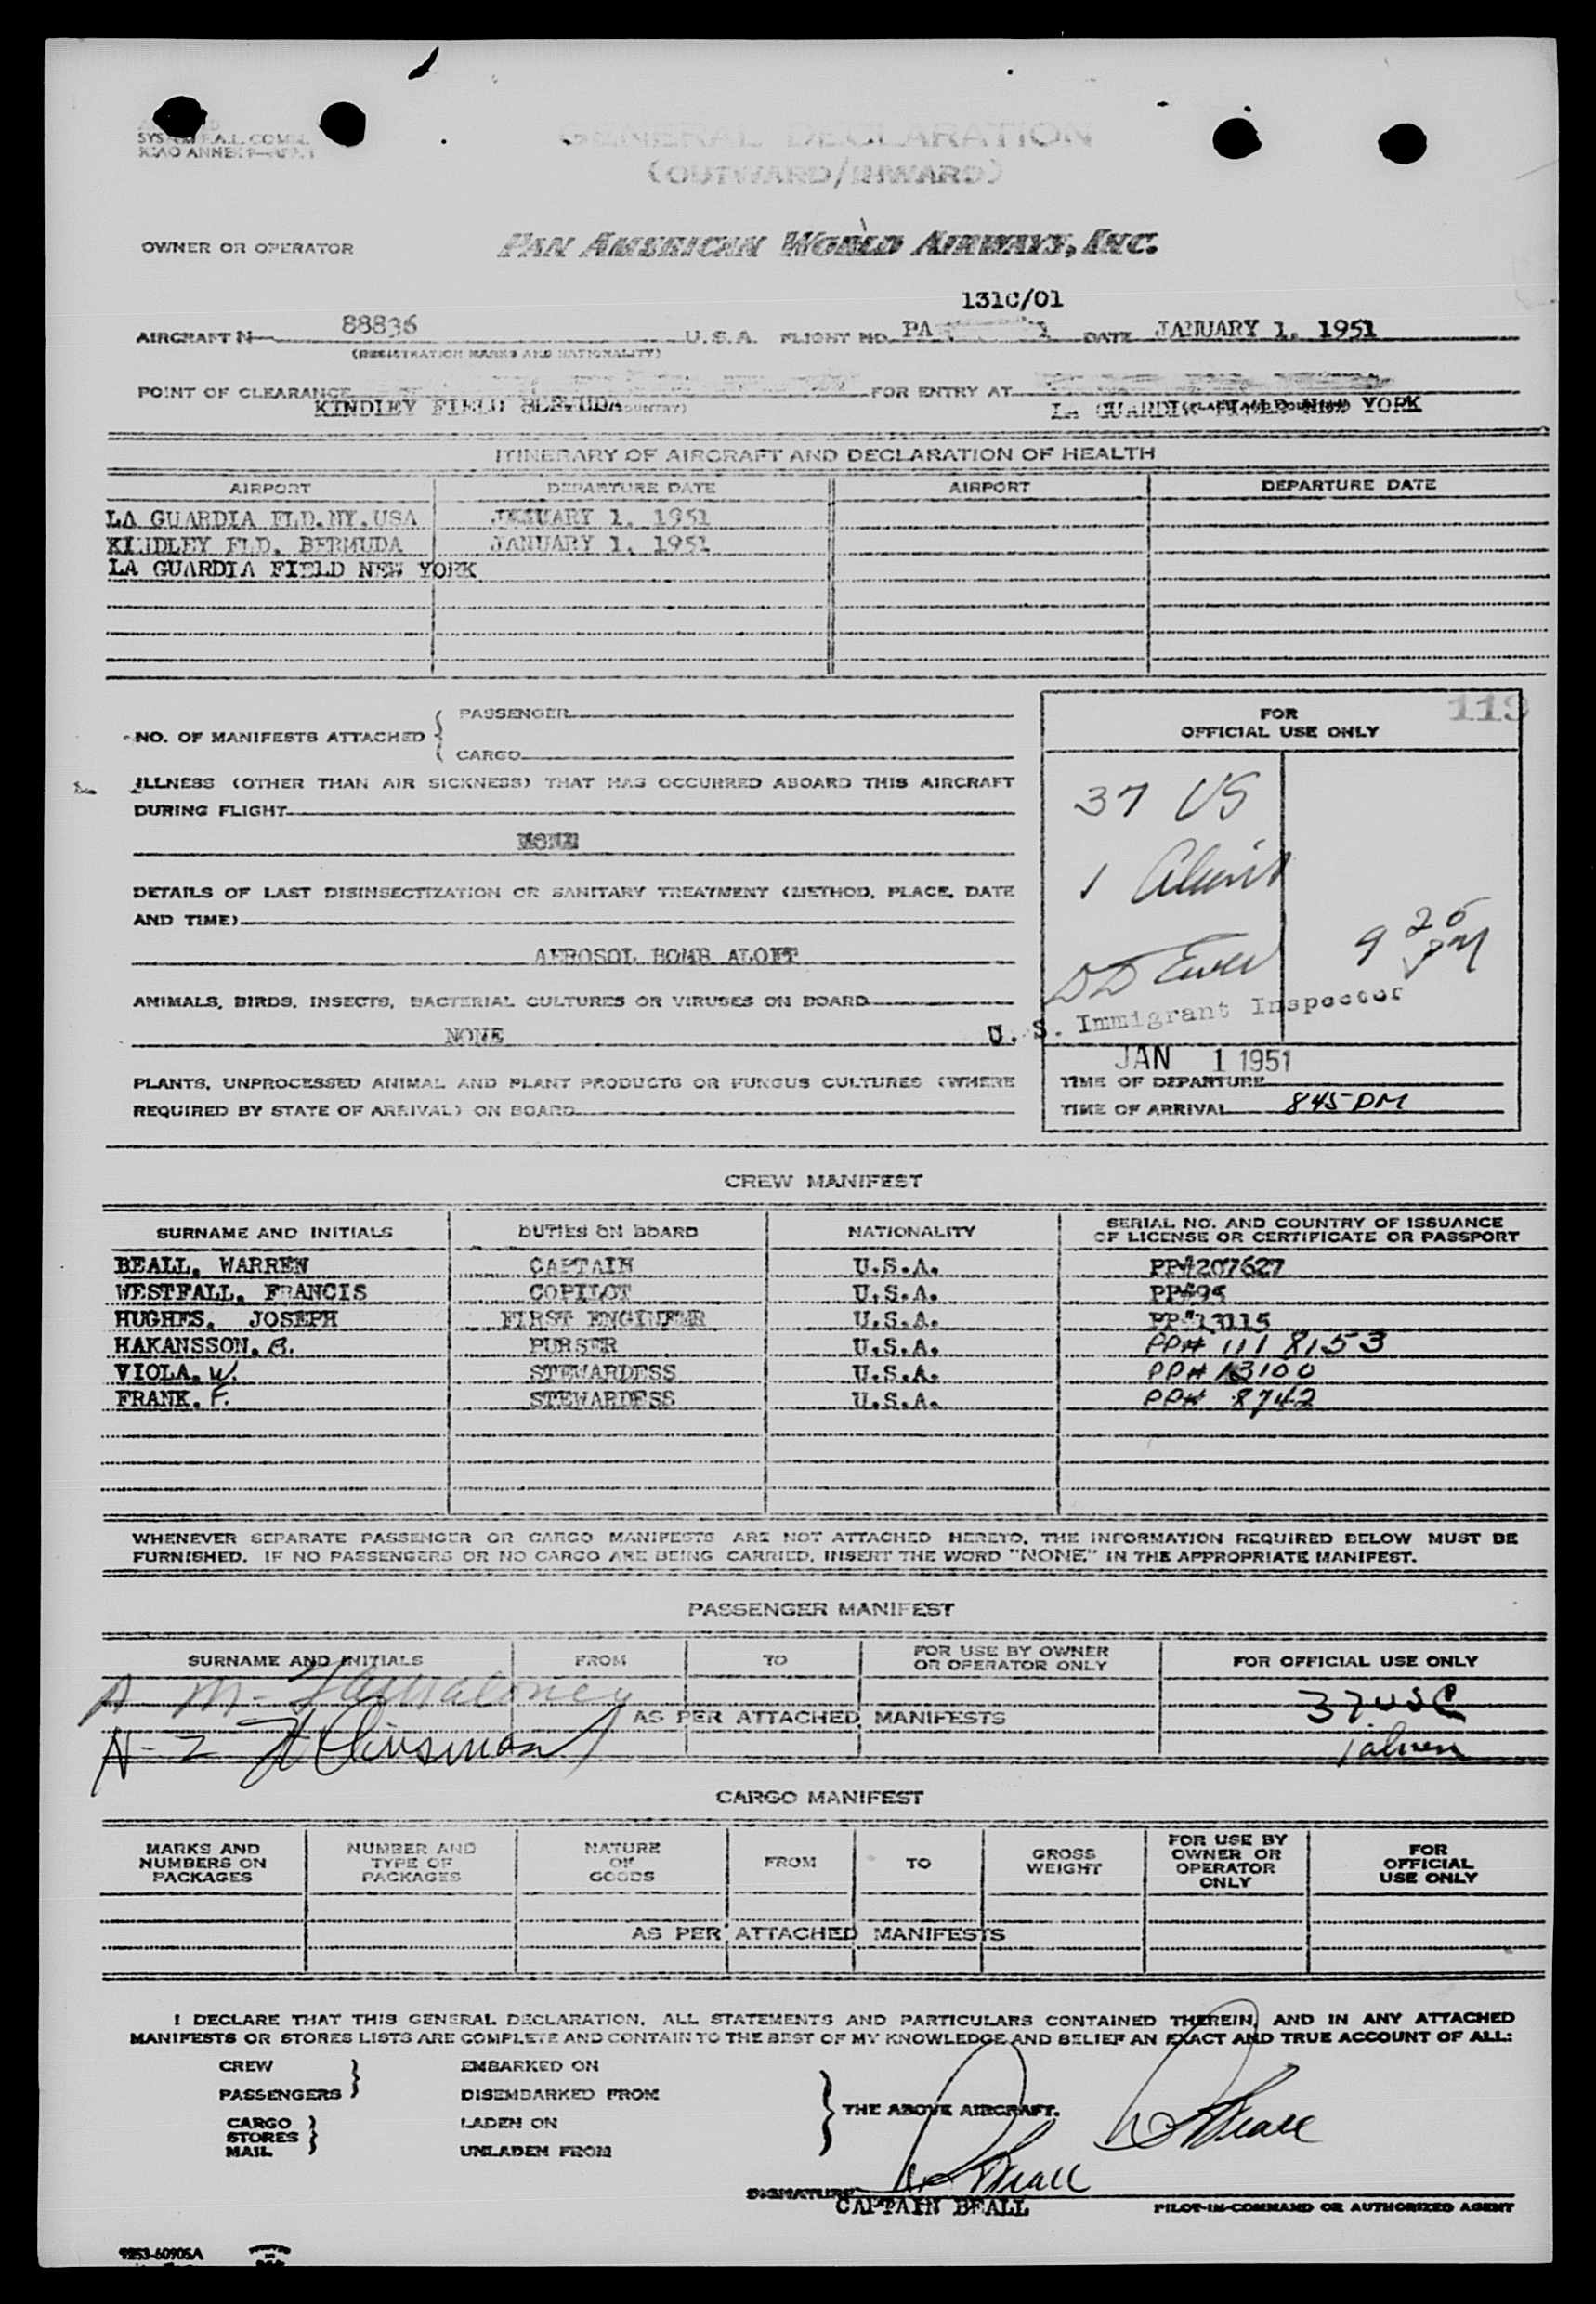 SYSTEM F.A.L. COM
ICAO ANNEX 9
GENERAL DECLARATION
(OUTWARD/INWARD)
OWNER OR OPERATOR PAN AMERICAN WORLD AIRWAYS, INC.
131C/01
AIRCRAFT N 88836 U.S.A. FLIGHT NO. PA 1 DATE JANUARY 1, 1951
(REGISTRATION MARKS AND NATIONALITY)
POINT OF CLEARANCE FOR ENTRY AT
KINDLEY FIELD BERMUDA COUNTRY) LA GUARDIA FIELD NEW YORK
ITINERARY OF AIRCRAFT AND DECLARATION OF HEALTH
AIRPORT DEPARTURE DATE AIRPORT DEPARTURE DATE
LA GUARDIA FLD.NY.USA JANUARY 1, 1951
KINDLEY FLD. BERMUDA JANUARY 1, 1951
LA GUARDIA FIELD NEW YORK
NO. OF MANIFESTS ATTACHED { PASSENGER
CARGO
ILLNESS (OTHER THAN AIR SICKNESS) THAT HAS OCCURRED ABOARD THIS AIRCRAFT
DURING FLIGHT
NONE
DETAILS OF LAST DISINSECTIZATION OR SANITARY TREATMENT (METHOD, PLACE, DATE
AND TIME)
AEROSOL BOMB ALOFT
ANIMALS, BIRDS, INSECTS, BACTERIAL CULTURES OR VIRUSES ON BOARD
NONE
PLANTS, UNPROCESSED ANIMAL AND PLANT PRODUCTS OR FUNGUS CULTURES (WHERE
REQUIRED BY STATE OF ARRIVAL) ON BOARD
FOR
OFFICIAL USE ONLY
119
37 US
1 Alien
9 25 PM
U. S. Immigrant Inspector
JAN 1 1951
TIME OF DEPARTURE
TIME OF ARRIVAL 845 PM
CREW MANIFEST
SURNAME AND INITIALS DUTIES ON BOARD NATIONALITY SERIAL NO. AND COUNTRY OF ISSUANCE
OF LICENSE OR CERTIFICATE OR PASSPORT
BEALL, WARREN CAPTAIN U.S.A. PP#207627
WESTFALL, FRANCIS COPILOT U.S.A. PP#95
HUGHES, JOSEPH FIRST ENGINEER U.S.A. PP#13115
HAKANSSON, B. PURSER U.S.A. PP# 1118153
VIOLA, W. STEWARDESS U.S.A. PP# 13100
FRANK, F. STEWARDESS U.S.A. PP# 8742
WHENEVER SEPARATE PASSENGER OR CARGO MANIFESTS ARE NOT ATTACHED HERETO, THE INFORMATION REQUIRED BELOW MUST BE
FURNISHED. IF NO PASSENGERS OR NO CARGO ARE BEING CARRIED, INSERT THE WORD "NONE" IN THE APPROPRIATE MANIFEST.
PASSENGER MANIFEST
SURNAME AND INITIALS FROM TO FOR USE BY OWNER
OR OPERATOR ONLY FOR OFFICIAL USE ONLY
A - M -
37 USC
AS PER ATTACHED MANIFESTS
N - Z
1 alien
CARGO MANIFEST
MARKS AND
NUMBERS ON
PACKAGES
NUMBER AND
TYPE OF
PACKAGES
NATURE
OF
GOODS
FROM
TO
GROSS
WEIGHT
FOR USE BY
OWNER OR
OPERATOR
ONLY
FOR
OFFICIAL
USE ONLY
AS PER ATTACHED MANIFESTS
I DECLARE THAT THIS GENERAL DECLARATION, ALL STATEMENTS AND PARTICULARS CONTAINED THEREIN, AND IN ANY ATTACHED
MANIFESTS OR STORES LISTS ARE COMPLETE AND CONTAIN TO THE BEST OF MY KNOWLEDGE AND BELIEF AN EXACT AND TRUE ACCOUNT OF ALL:
CREW EMBARKED ON
PASSENGERS } DISEMBARKED FROM
CARGO LADEN ON
STORES } } THE ABOVE AIRCRAFT.
MAIL UNLADEN FROM
W Beall
W Beall
SIGNATURE
CAPTAIN BEALL PILOT-IN-COMMAND OR AUTHORIZED AGENT
9253-60905A